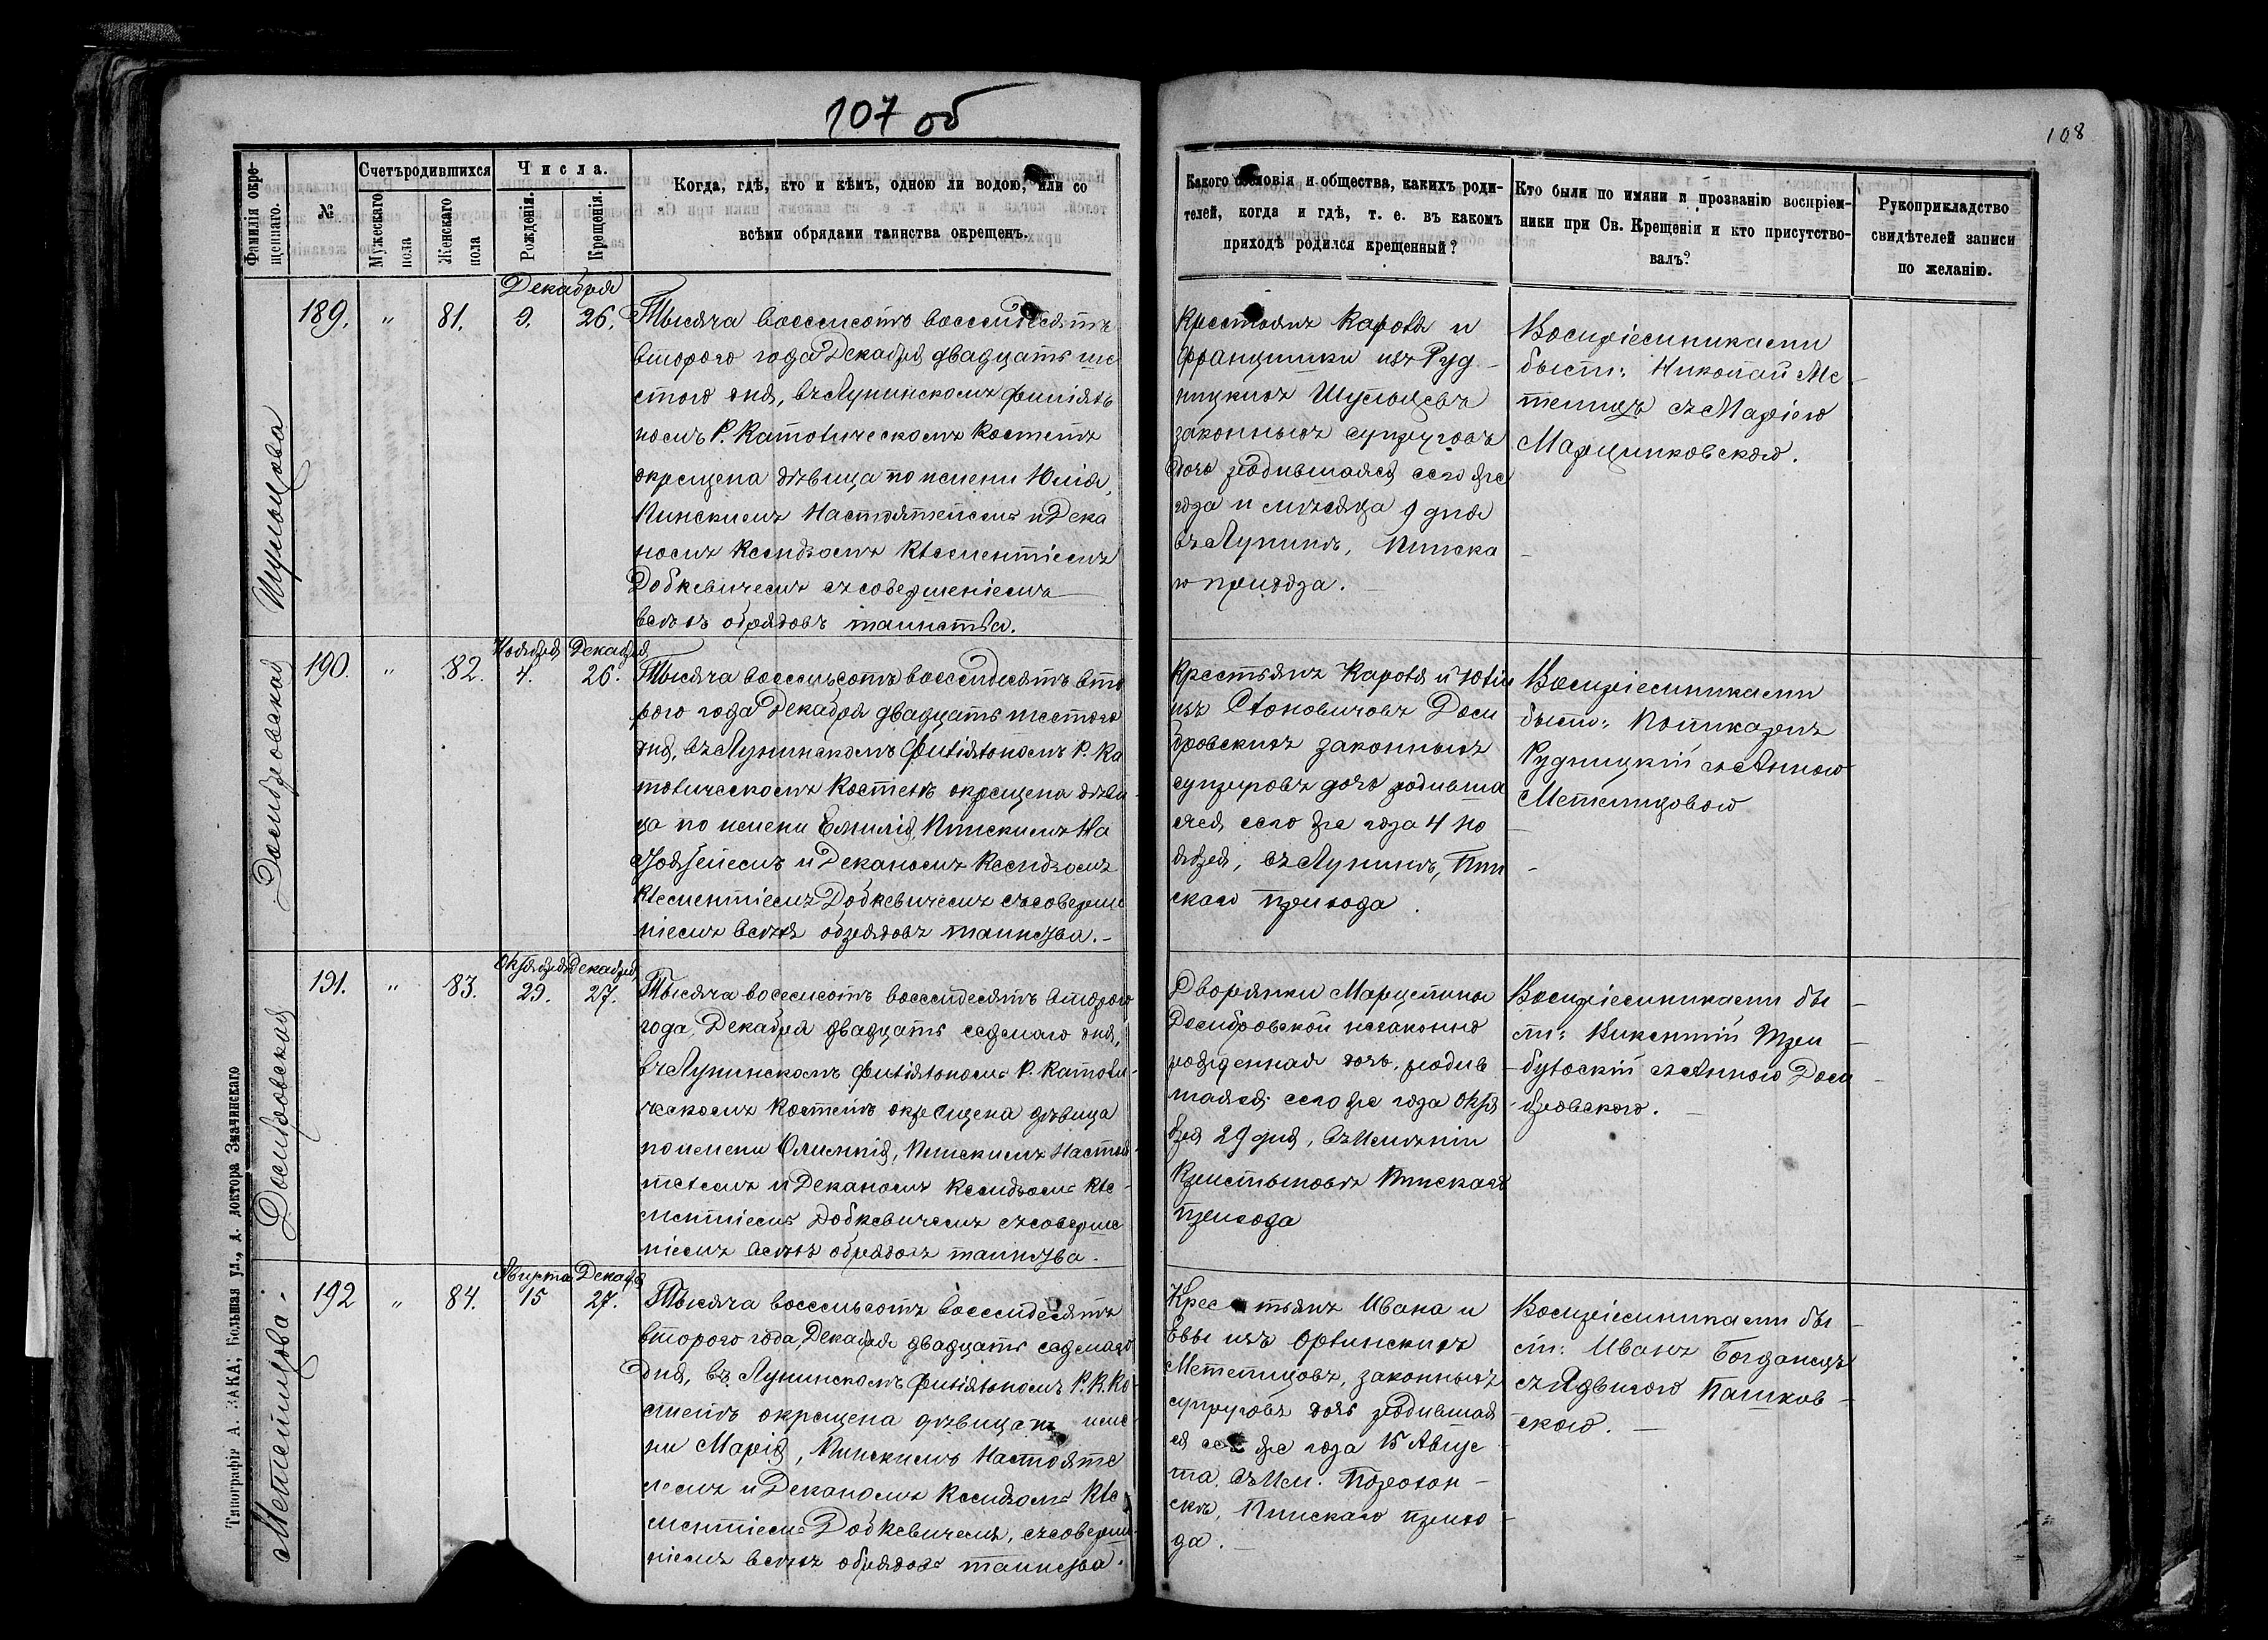 107 об
108
Фамилія окре-
щеннаго.
№
Счетъ родившихся
Мужескаго
пола
Женскаго
пола
Числа.
Рожденія.
Крещенія.
Когда, гдѣ, кто и кѣмъ, одною ли водою, или со
всѣми обрядами таинства окрещенъ.
Какого сословія и общества, какихъ роди-
телей, когда и гдѣ, т. е. въ какомъ
приходѣ родился крещенный?
Кто были по имяни и прозванію воспріем-
ники при Св. Крещеніи и кто присутство-
валъ?
Рукоприкладство
свидѣтелей записи
по желанію.
189.
"
81.
Декабря
9. 26.
Тысяча восемсотъ восемдесятъ
второго года Декабря двадцать ше
стого дня, въ Лунинскомъ филіяль
номъ Р. Католическомъ Костелѣ
окрещена дѣвица по имени Юлія,
Пинскимъ Настоятелемъ и Дека
номъ Ксендзомъ Клементіемъ
Добкевичемъ съ совершеніемъ
всѣхъ обрядовъ таинства.
Крестьянъ Кароля и
Францишки изъ Руд-
ницкихъ
законныхъ супруговъ
дочь родившаяся сего же
года и мѣсяца 9 дня
въ Лунинѣ, Пинска
го прихода.
Воспріемниками
были: Николай Ме-
телицъ съ Маріею
Марцинковскою.
190.
"
82.
Ноября Декабря
4. 26.
Домбровская
Тысяча восемьсотъ восемдесятъ вто
рого года Декабря двадцать шестого
дня, въ Лунинскомъ Филіяльномъ Р. Ка
толическомъ Костелѣ окрещена дѣви-
ца по имени Емилія, Пинскимъ На
стоятелемъ и Деканомъ Ксендзомъ
Клементіемъ Добкевичемъ съ соверше
ніемъ всѣхъ обрядовъ таинства.-
Крестьянъ Кароля и Юліи
изъ Домб
бровскихъ законныхъ
супруговъ дочь родивша
яся сего же года 4 но
ября, въ Лунинѣ, Пин
скаго прихода.
Воспріемниками
были: Поликарпъ
Рудницкій съ Анною
Метелицовою
191.
"
83.
Октября Декабря
29. 27.
Домбровская
Тысяча восемсотъ восемдесятъ второго
года Декабря двадцать седмаго дня,
въ Лунинскомъ Филіяльномъ Р. Католи-
ческомъ Костелѣ окрещена дѣвица
по имени Олимпія, Пинскимъ Настоя-
телемъ и Деканомъ Ксендзомъ Кле-
ментіемъ Добкевичемъ съ соверше
ніемъ всѣхъ обрядовъ таинства.
Дворянки Марцелины
Домбровской незаконно
рожденная дочь, родив
шаяся сего же года Октя
бря 29 дня, въ Имѣніи
Пинскаго
прихода
Воспріемниками бы-
ли: Викентій
съ Анною Дом
бровскою.
192
"
84.
Августа Декабря
15 27.
Метелицова.
Тысяча восемьсотъ восемдесятъ
второго года, Декабря двадцать седмаго
Дня, въ Лунинскомъ Филіяльномъ Р. К. Ко-
стелѣ окрещена дѣвица по име
ни Марія, Пинскимъ Настояте
лемъ и Деканомъ Ксендзомъ Кле
ментіемъ Добкевичемъ, съ соверше-
ніемъ всѣхъ обрядовъ таинства.
Крестьянъ Ивана и
Евы изъ Орлинскихъ
Метелицовъ, законныхъ
супруговъ дочь родившая
ся сего же года 15 Авгус
та, въ Им.
Пинскаго прихо-
да.
Воспріемниками бы-
ли: Иванъ Богданецъ
съ Ядвигою Пашков-
скою.
Типографія А. ЗАКА, Большая ул., д. доктора Значинскаго